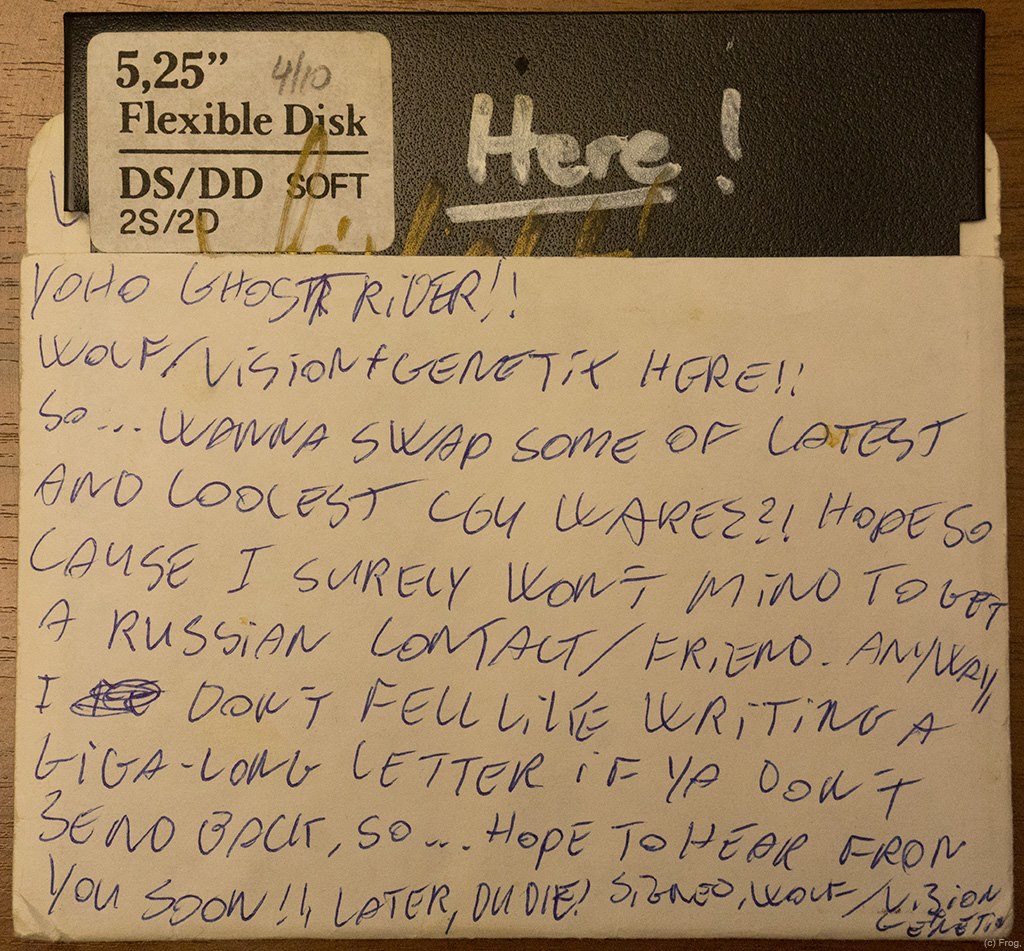 5,25" 4/10
Flexible Disk
DS/DD SOFT
2S/2D
Here!
YOHO GHOST RiDER!!
WOLF/ViSiON+GENETiX HERE!!
SO... WANNA SWAP SOME OF LATEST
AND COOLEST C64 WAREZ?! HOPE SO
CAUSE I SURELY WON'T MiND TO GET
A RUSSiAN CONTACT/FRiEND. ANYWAY
I DON'T FELL LiKE WRiTiNG A
GiGA-LONG LETTER iF YA DON'T
SEND BACK, SO... HOPE TO HEAR FROM
YOU SOON!! LATER, DUDiE! SiGNED, WOLF/ViSiON
GENETiX
(c) Frog,